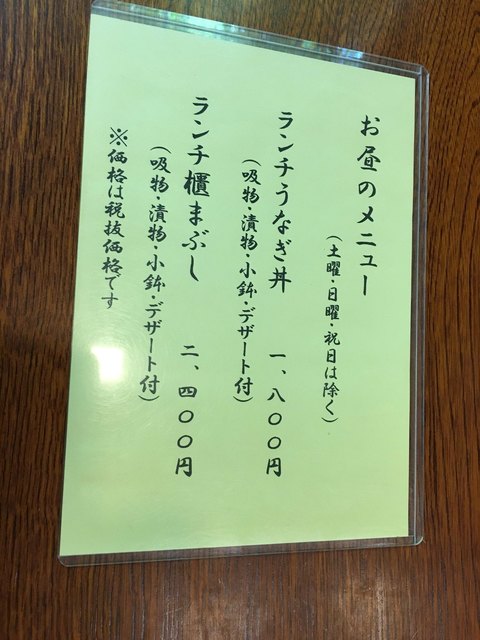 お昼のメニュー
（土曜・日曜・祝日は除く）
ランチうなぎ丼　一、八〇〇円
（吸物・漬物・小鉢・デザート付）
ランチ櫃まぶし　二、四〇〇円
（吸物・漬物・小鉢・デザート付）
※価格は税抜価格です